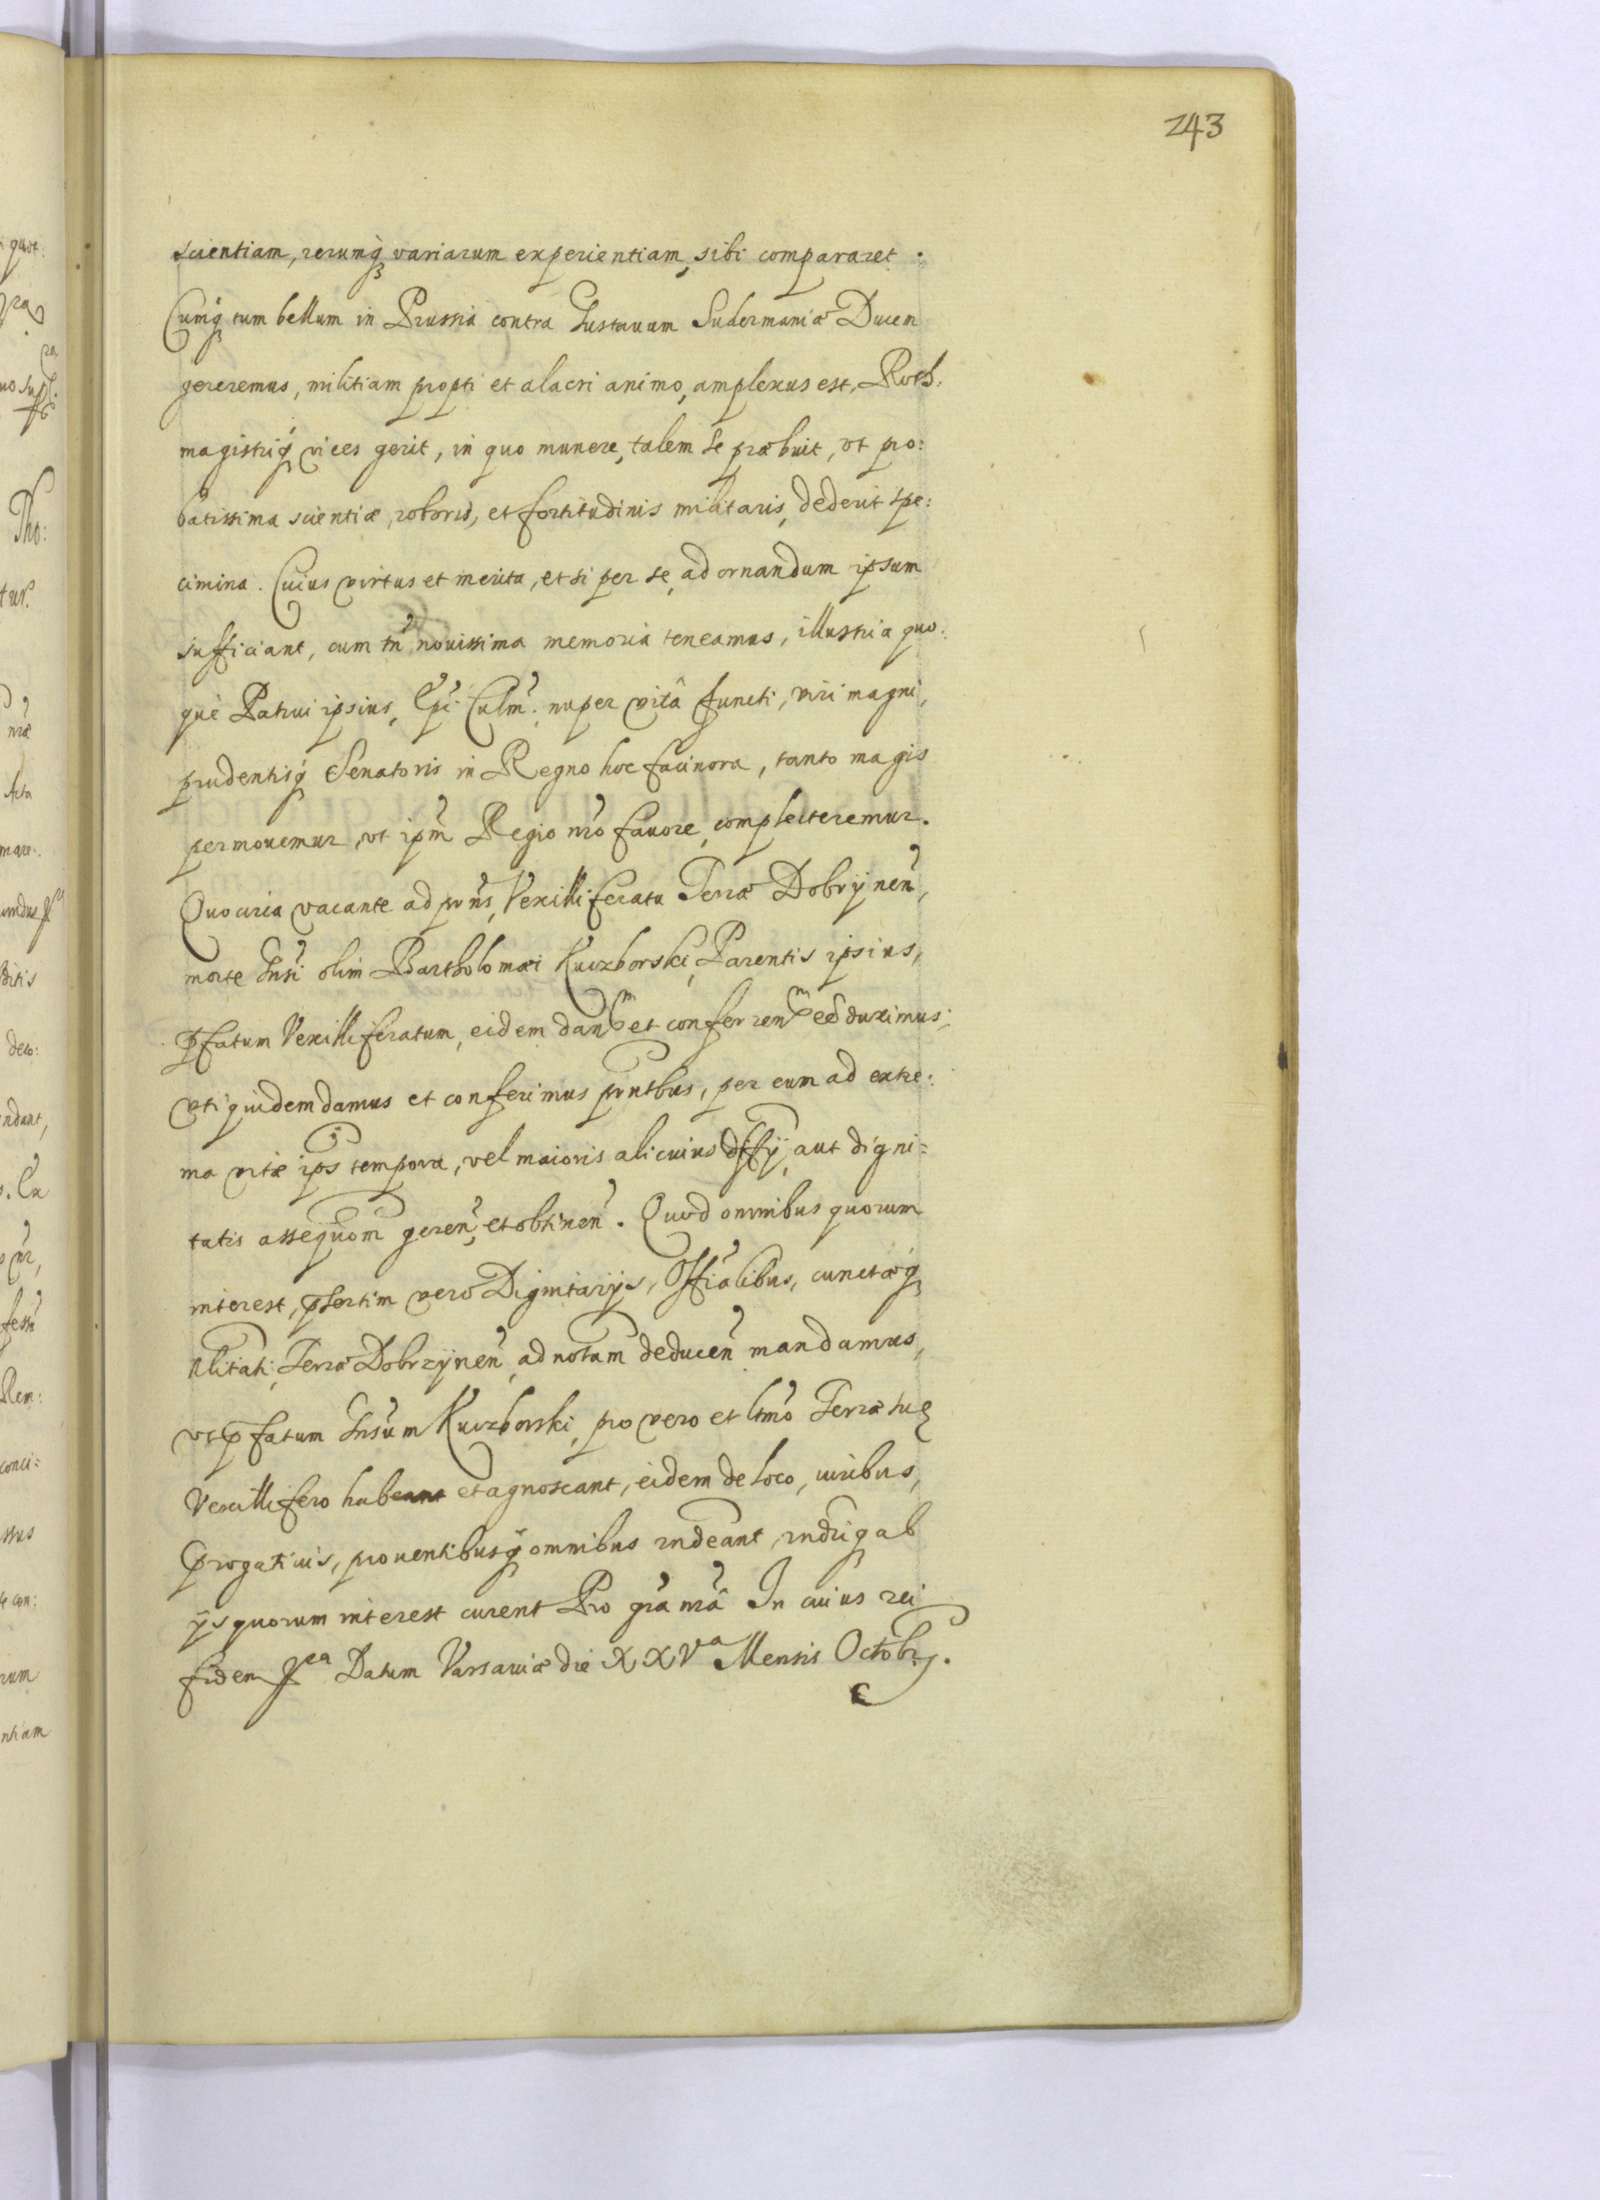 243
scientiam, rerumq variarum experientiam, sibi compararet.
Cumq tum bellum in Prussia contra Gustauum Sudermaniæ Ducen
gereremus, militiam propti et alacri animo, amplexus est, Roth:
magistriq vices gerit, in quo munere, talem se præbuit, vt pro:
batissima scientiæ, roboris, et fortitudinis militaris, dederit spe:
cimina. Cuius virtus et merita, etsi per se, ad ornandum ipsum
sufficiant, cum tn nouissima memoria teneamus, illustria quo:
què Patrui ipsius, Epi Culm: nuper vitâ functi, viri magni,
prudentisq Senatoris in Regno hoc facinora, tanto magis
permouemur, vt ipm Regio nro fauore, complecteremur.
Quocirca vacante ad prns, Vexilliferatu Terræ Dobrÿnen,
morte Gnsi olim Bartholomæi Kuczborski, Parentis ipsius,
pfatum Vexilliferatum, eidem dan et conferren duximus;
vti quidem damus et conferimus prntbus, per eum ad extre:
ma vitæ ips tempora, vel maioris alicuius Offÿ, aut digni=
tatis assequom geren, et obtinen. Quod omnibus quorum
interest, psertim vero Dignitarÿs, Offialibus, cunctæq
Nlitati, Terræ Dobrzÿnen, ad notam deducen mandamus,
vt pfatum Gnsum Kuczborski, pro vero et ltmo Terræ hu
Vexillifero habeant et agnoscant, eidem de loco, iuribus,
progatiuis, prouentibusq omnibus rndeant, rndriq ab
ÿs quorum interest curent Pro gra nra In cuius rei
fidem Datum Varsauiæ die XXVa Mensis Octobr.